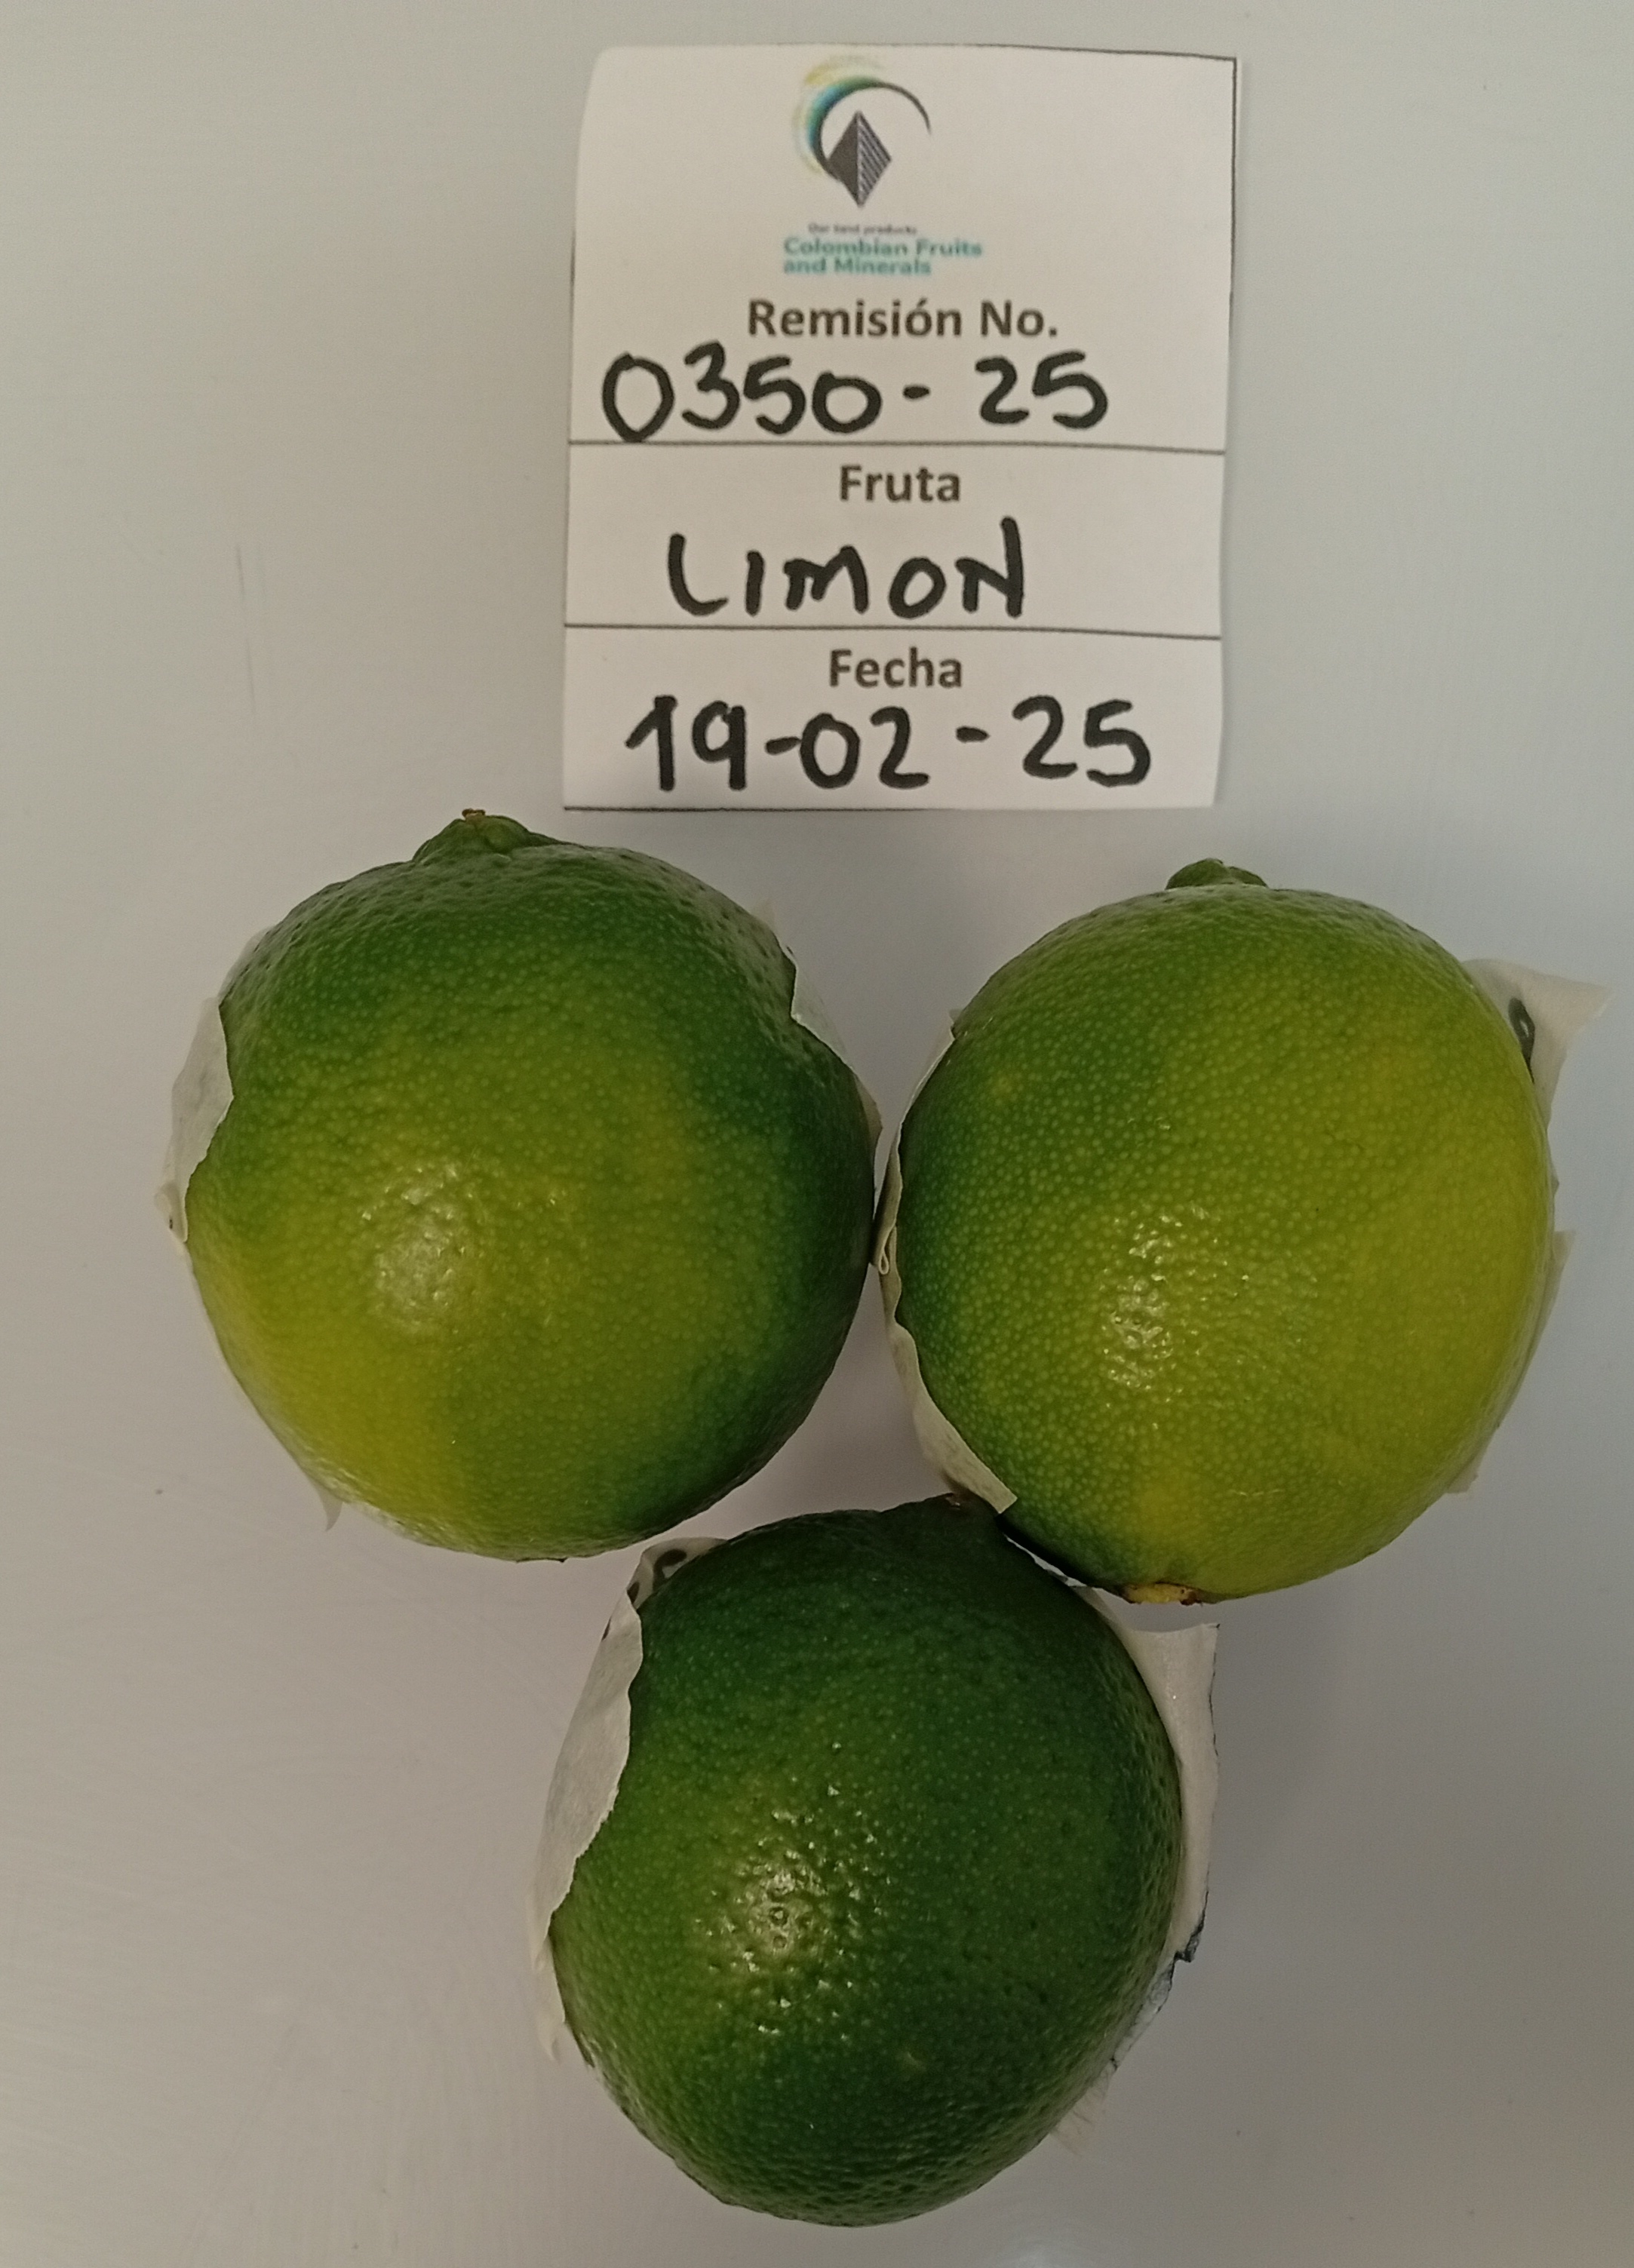 Our best products
Colombian Fruits
and Minerals
Remisión No.
0350-25
Fruta
LIMON
Fecha
19-02-25